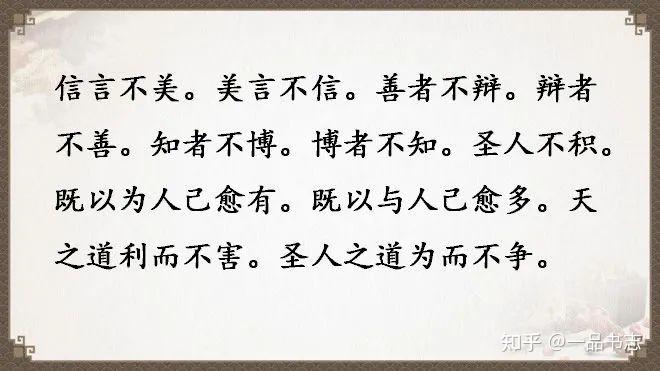 信言不美。美言不信。善者不辩。辩者
不善。知者不博。博者不知。圣人不积。
既以为人己愈有。既以与人己愈多。天
之道利而不害。圣人之道为而不争。
知乎 @一品书志